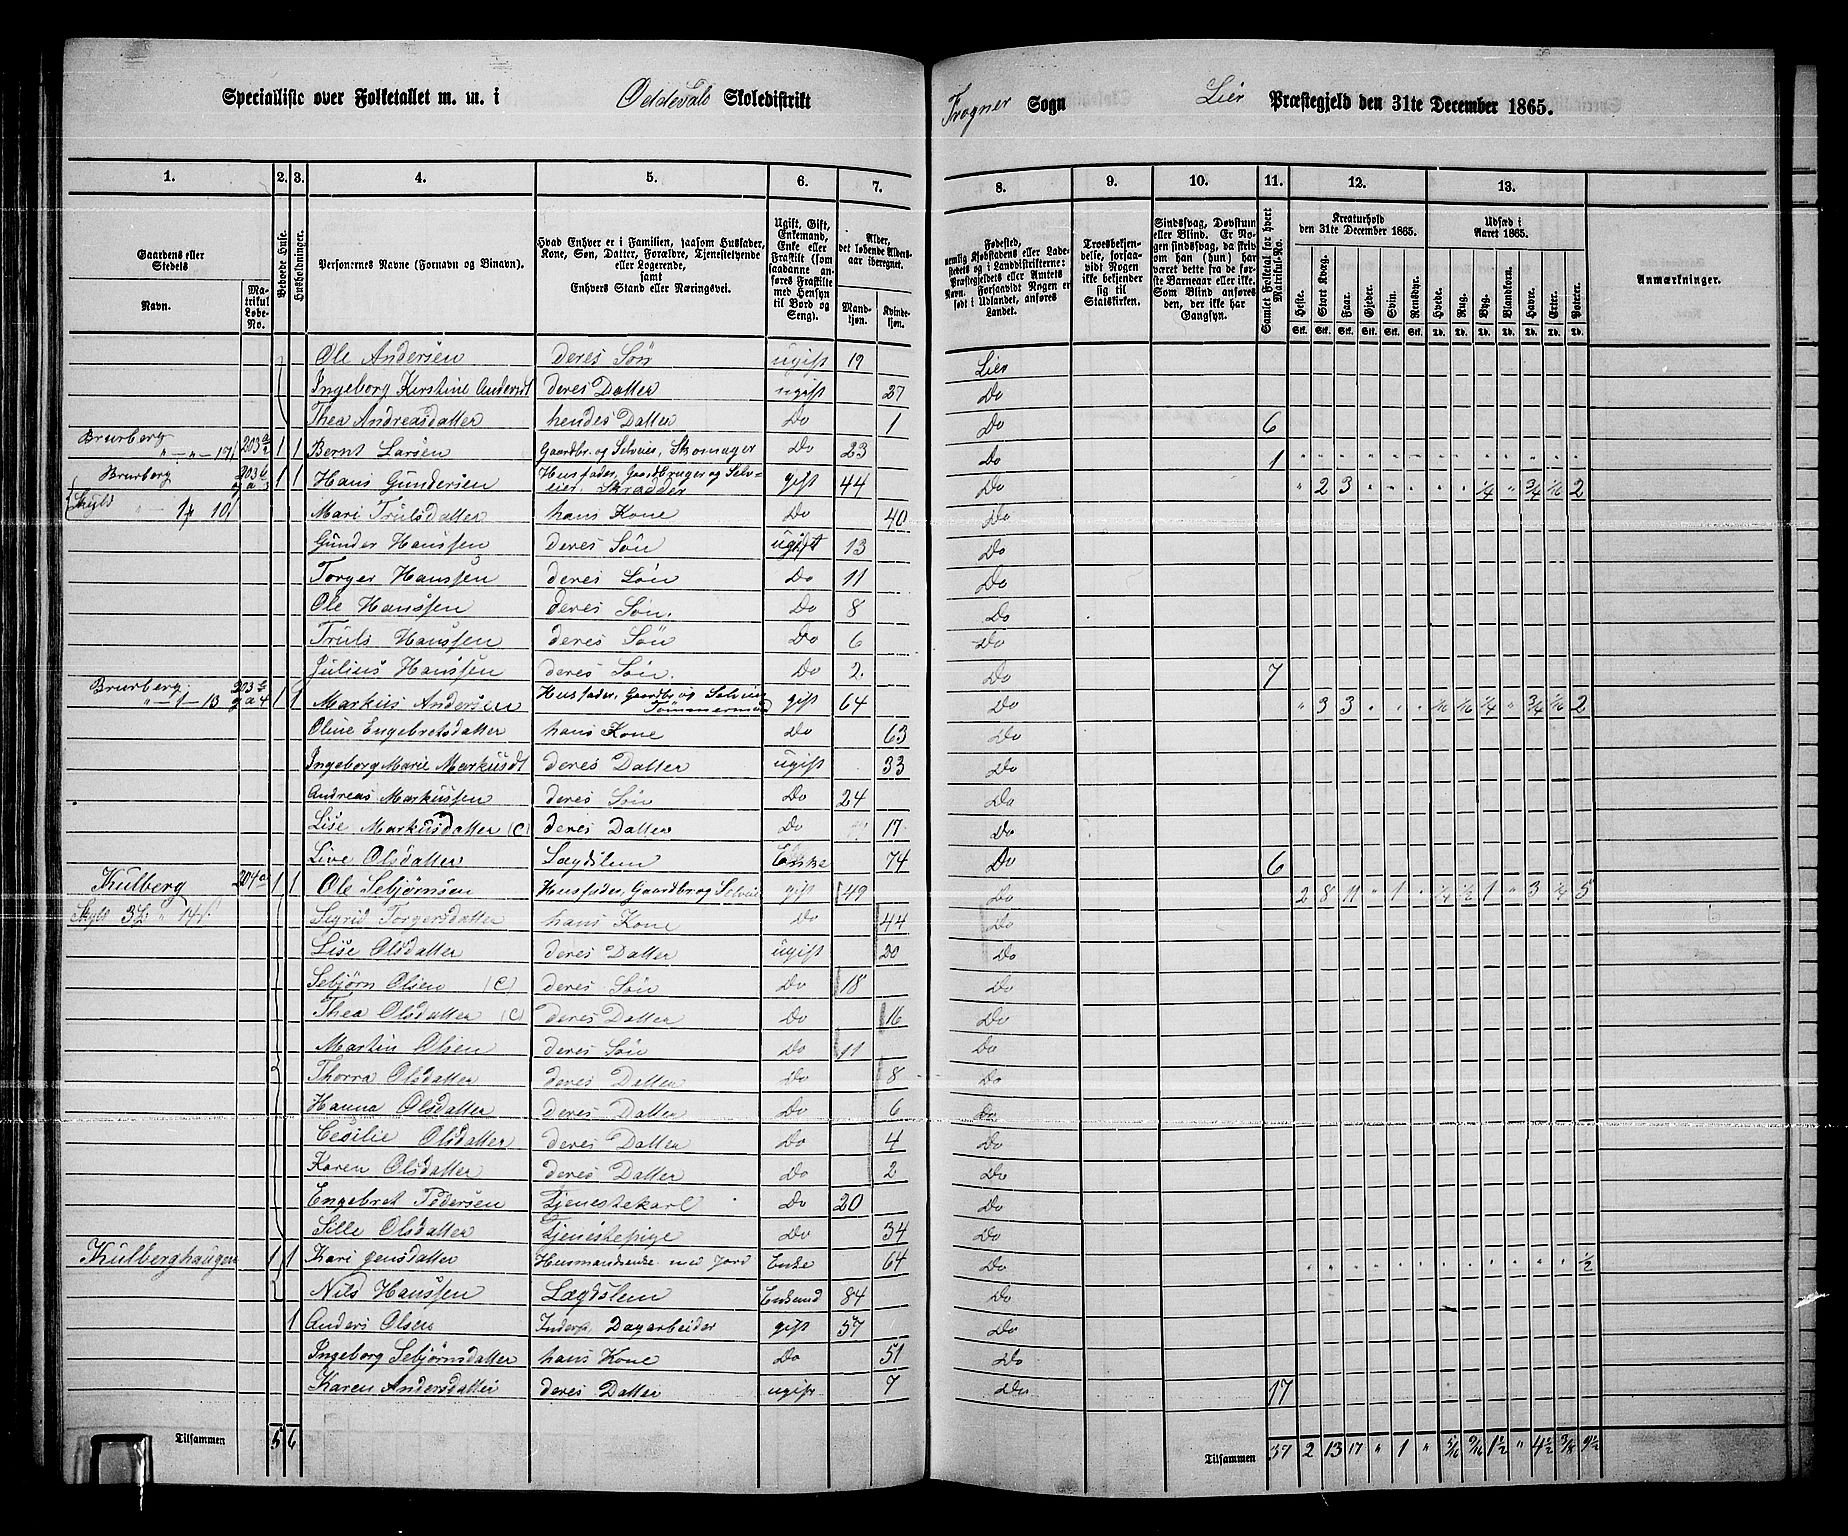 Specialliste over Folketallet m. m. i Oddevals Skoledistrikt Frogner Sogn Lier Præstegjeld den 31te December 1865.
1. 2. 3. 4. 5. 6. 7. 8. 9. 10. 11. 12. 13.
Gaardens eller Stedets
Navn.
Matrikul Løbe-No.
Beboede Huse.
Husholdninger.
Personernes Navne (Fornavn og Binavn).
Hvad Enhver er i Familien, saasom Husfader, Kone, Søn, Datter, Forældre, Tjenestetyende eller Logerende, samt Enhvers Stand eller Næringsvei.
Ugift, Gift, Enkemand, Enke eller Fraskilt (som saadanne anføres Fraskilte med Hensyn til Bord og Seng).
Alder, det løbende Aldersaar iberegnet.
Mandkjøn.
Kvindekjøn.
Fødested, nemlig Kjøbstadens eller Ladestedets og i Landdistrikterne: Præstegjeldets eller Amtets Navn. Forsaavidt Nogen er født i Udlandet, anføres Landet.
Troesbekjendelse, forsaavidt Nogen ei bekjender sig til Statskirken.
Sindssvag, Døvstum eller Blind. Er Nogen sindssvag, da skriv om han (hun) har været dette fra de første Barneaar eller ikke. Som Blind anføres den, der ikke har Gangsyn.
Samlet Folketal for hvert Matrikul-No.
Kreaturhold den 31te December 1865.
Heste. Stort Kvæg. Faar. Gjeder. Svin. Rensdyr.
Udsæd i Aaret 1865.
Hvede. Rug. Byg. Blandkorn. Havre. Erter. Poteter.
Anmærkninger.
Ole Andersen deres Søn ugift 19 Lier
Ingeborg Kirstine Andersdt deres Datter ugift 27 Do
Thea Andreasdatter hendes Datter Do 1 Do 6
Brurberg 203 1 1 Bernt Larsen Gaardbr. og Selveier, Skomager Do 23 Do 1
Brurberg 203 1 1 Hans Gundersen Husfader, Gaardbruger og Selveier, Skrædder gift 44 Do " 2 3 1/4 " 3/4 1/16 2
Skyld Mari Trulsdatter hans Kone Do 40 Do
Gunder Hanssen deres Søn ugift 13 Do
Torger Hanssen deres Søn Do 11 Do
Ole Hanssen deres Søn. Do 8 Do
Truls Hanssen deres Søn Do 6 Do
Julius Hanssen deres Søn. Do 2. Do 7
Brurberg 203 1 1 Markus Andersen Husfader, Gaardbr og Selveier Tømmermand gift 64 Do " 3 3 1/16 1/16 1/4 " 3/4 1/16 2
Oline Engebretsdatter hans Kone Do 63 Do
Ingeborg Marie Markusdt deres Datter ugift 33 Do
Andreas Markussen deres Søn Do 24 Do
Lise Markusdatter (C) deres Datter Do 17 Do
Live Olsdatter Lægdslem Enke 74 Do 6
Kulberg 204 a 1 1 Ole Sebjørnsen Husfader, Gaardbr og Selveier gift 49 Do 2 8 11 " 1 " 1/4 1/2 1 " 3 1/4 5
Sigrid Torgersdatter hans Kone Do 44 Do
Lise Olsdatter deres Datter ugift 20 Do
Sebjørn Olsen (C) deres Søn Do 18 Do
Thea Olsdatter (C) deres Datter Do 16 Do
Martin Olsen deres Søn Do 11 Do
Thorra Olsdatter deres Datter Do 8 Do
Hanna Olsdatter deres Datter Do 6 Do
Cecilie Olsdatter deres Datter Do 4 Do
Karen Olsdatter deres Datter Do 2 Do
Engebret Pedersen Tjenestekarl Do 20 Do
Sille Olsdatter Tjenestepige Do 34 Do
Kulberghaugen 1 1 Kari Jensdatter Husmandsenke med Jord Enke 64 Do 1/2
Nils Hanssen Lægdslem Enkemd 84 Do
1 Anders Olsen Inderst, Dagarbeider gift 57 Do
Ingeborg Sebjørnsdatter hans Kone Do 51 Do
Karen Andersdatter deres Datter ugift 7 Do 17
Tilsammen 5 6 Tilsammen 37 2 13 17 " 1 " 5/16 9/16 1 1/2 " 4 1/2 3/8 9 1/2